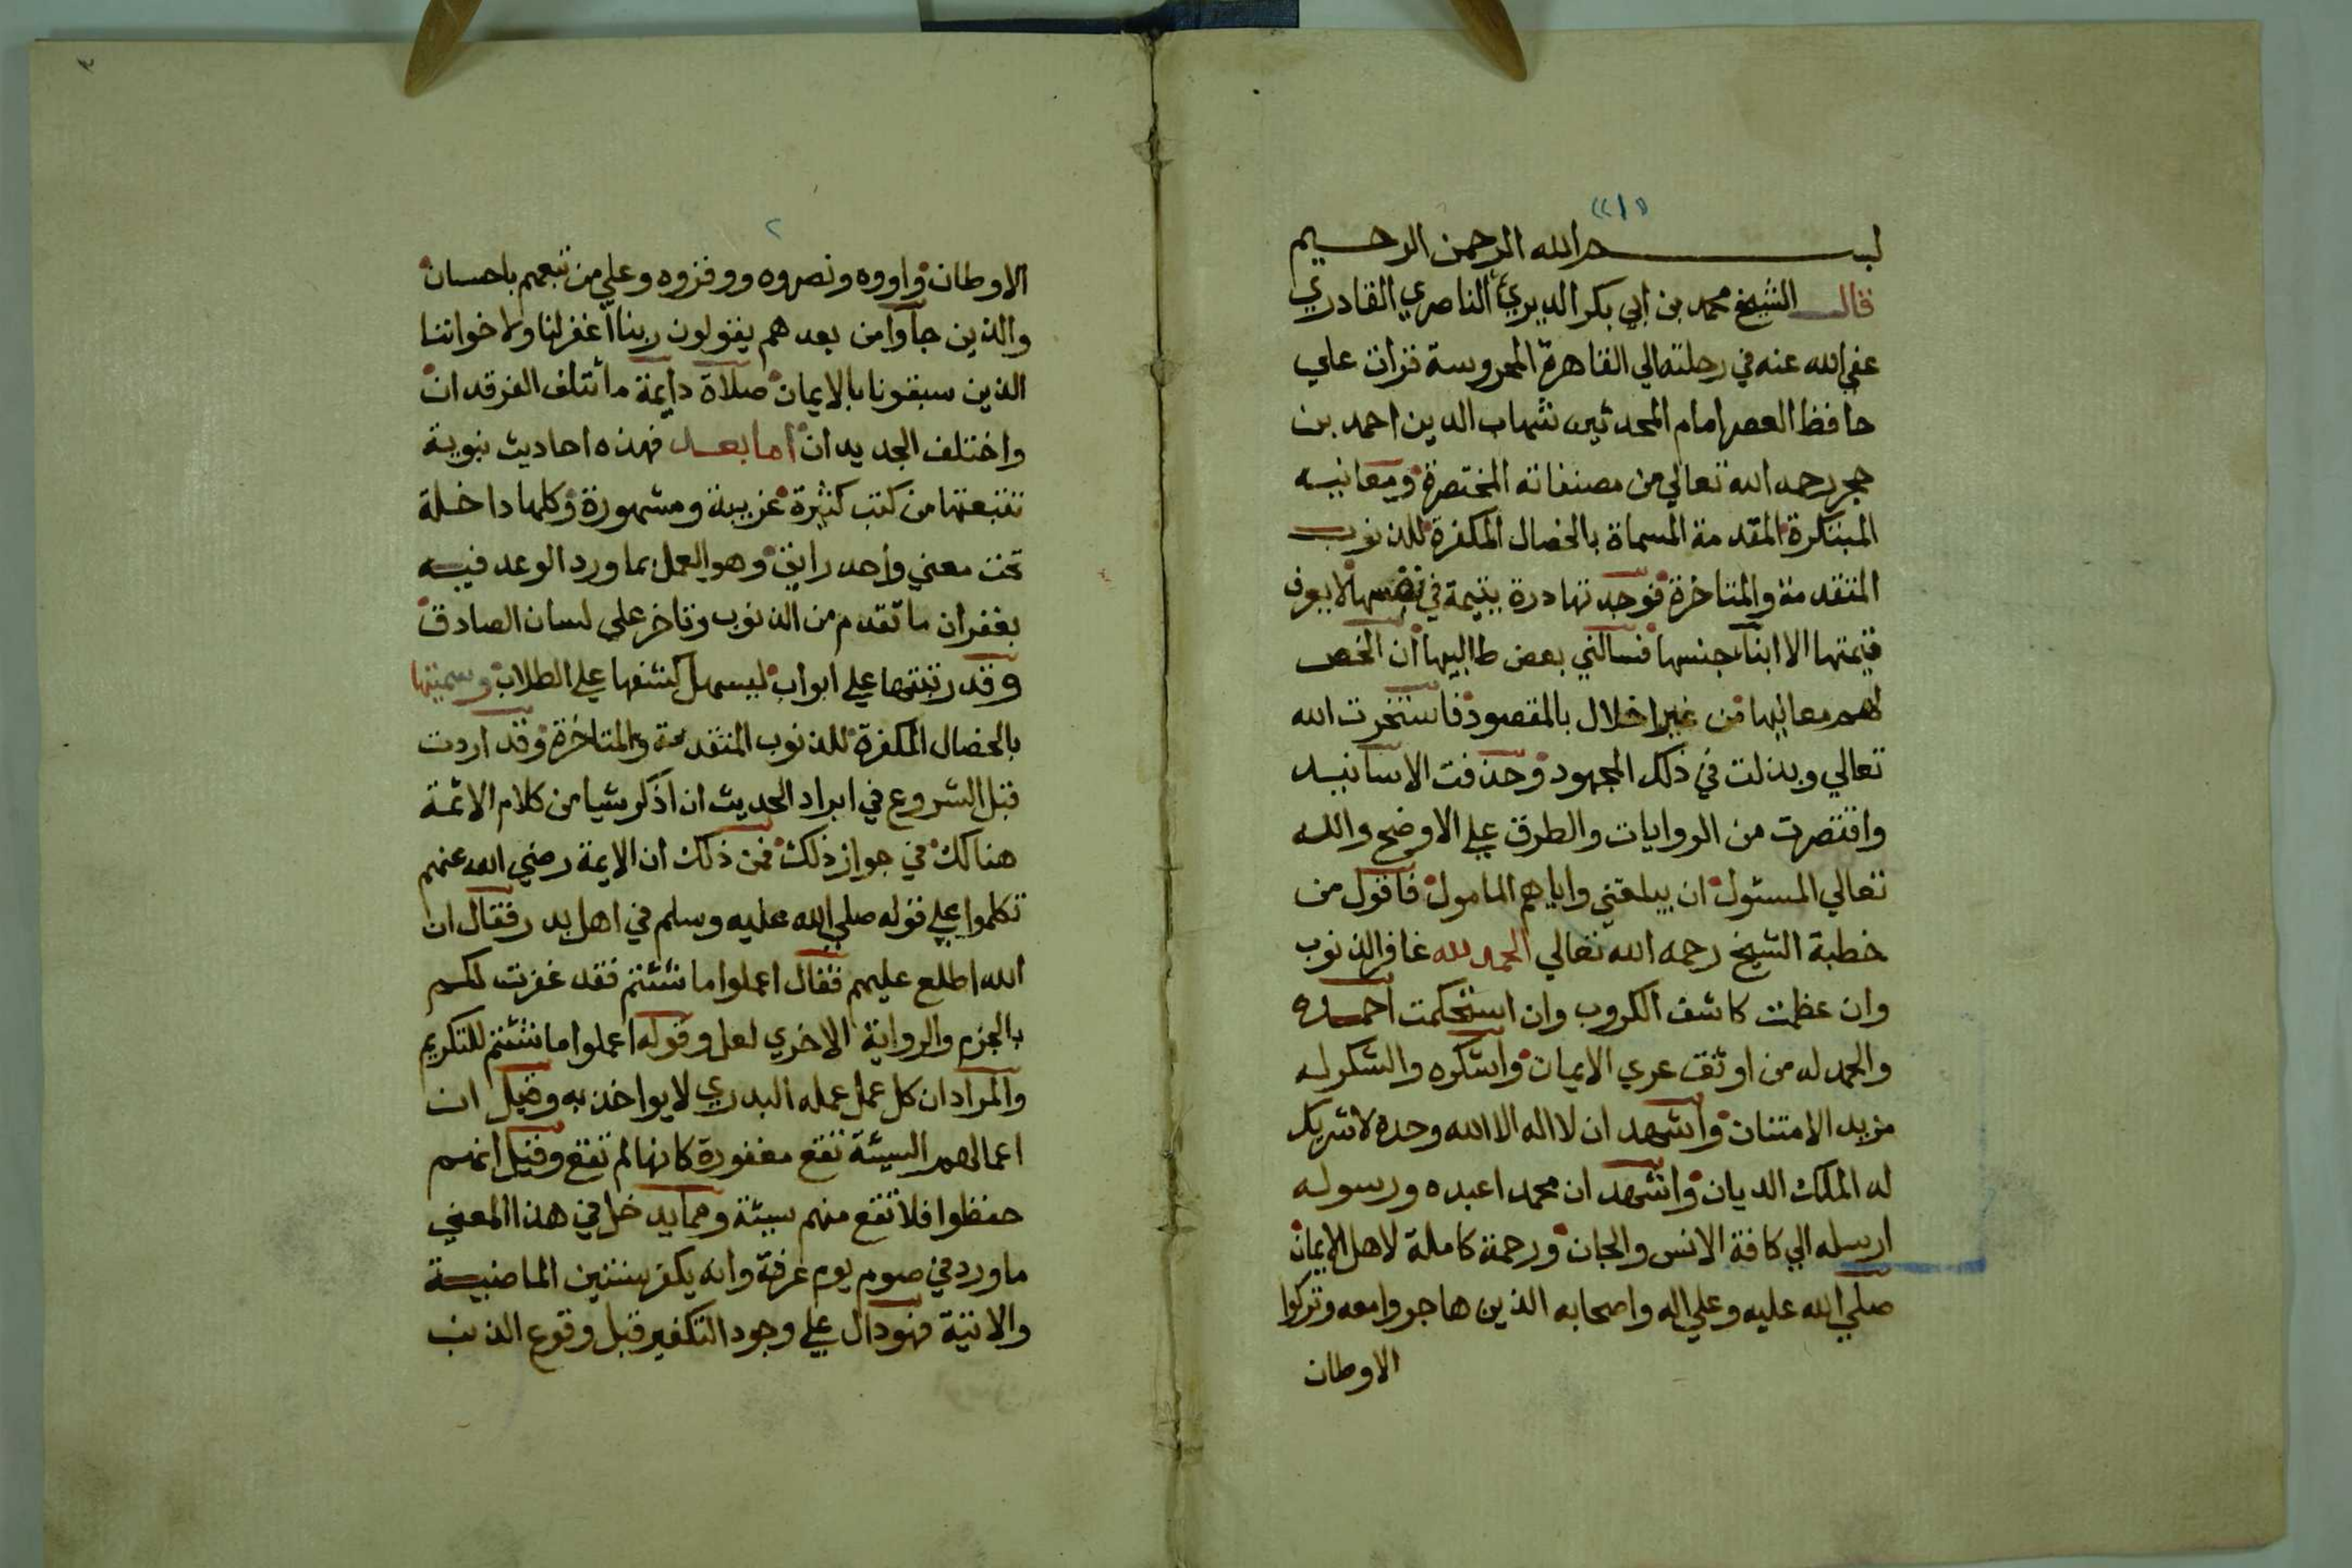 «١»
بسم الله الرحمن الرحيم
قال الشيخ محمد بن ابي بكر الديري الناصري القادري
عفي الله عنه في رحلته الي القاهرة المحروسة قرات علي
حافظ العصر امام المحدثين شهاب الدين احمد بن
حجر رحمه الله تعالي من مصنفاته المختصرة ومعانيه
المبتكرة المقدمة المسماة بالخصال المكفرة للذنوب
المتقدمة والمتاخرة فوجدتها درة يتيمة في نفسها لا يعرف
قيمتها الا ابناء جنسها فسالني بعض طالبيها ان الخص
لهم معانيها من غير اخلال بالمقصود فاستخرت الله
تعالي وبذلت في ذلك المجهود وحذفت الاسانيد
واقتصرت من الروايات والطرق علي الاوضح والله
تعالي المسئول ان يبلغني واياهم المامول فاقول من
خطبة الشيخ رحمه الله تعالي الحمد لله غافر الذنوب
وان عظمت كاشف الكروب وان استحكمت احمده
والحمد له من اوثق عري الايمان واشكره والشكر له
مزيد الامتنان واشهد ان لا اله الا الله وحده لا شريك
له الملك الديان واشهد ان محمدا عبده ورسوله
ارسله الي كافة الانس والجان ورحمة كاملة لاهل الايمان
صلي الله عليه وعلي اله واصحابه الذين هاجروا معه وتركوا
الاوطان
٣
٢
الاوطان واووه ونصروه ووقروه وعلي من تبعهم باحسان
والذين جاوا من بعدهم يقولون ربنا اغفر لنا ولاخواننا
الذين سبقونا بالايمان صلاة دايمة ما ئتلف الفرقدان
واختلف الجديدان اما بعد فهذه احاديث نبوية
تتبعتها من كتب كثيرة غريبة ومشهورة وكلها داخلة
تحت معني واحد رايق وهو العمل بما ورد الوعد فيه
بغفران ما تقدم من الذنوب وتاخر علي لسان الصادق
وقد رتبتها علي ابواب ليسهل كشفها علي الطلاب وسميتها
بالخصال المكفرة للذنوب المتقدمة والمتاخرة وقد اردت
قبل الشروع في ايراد الحديث ان اذكر شيا من كلام الائمة
هنالك في جواز ذلك فمن ذلك ان الايمة رضي الله عنهم
تكلموا علي قوله صلي الله عليه وسلم في اهل بدر فقال ان
الله اطلع عليهم فقال اعملوا ما شئتم فقد غفرت لكم
بالجزم والرواية الاخري لعل وقوله اعملوا ما شئتم للتكريم
والمراد ان كل عمل عمله البدري لا يواخذ به وقيل ان
اعمالهم السيئة تقع مغفورة كانها لم تقع وقيل انهم
حفظوا فلا تقع منهم سيئة ومما يدخل في هذا المعني
ما ورد في صوم يوم عرفة وانه يكفر سنتين الماضية
والاتية فهو دال علي وجود التكفير قبل وقوع الذنب